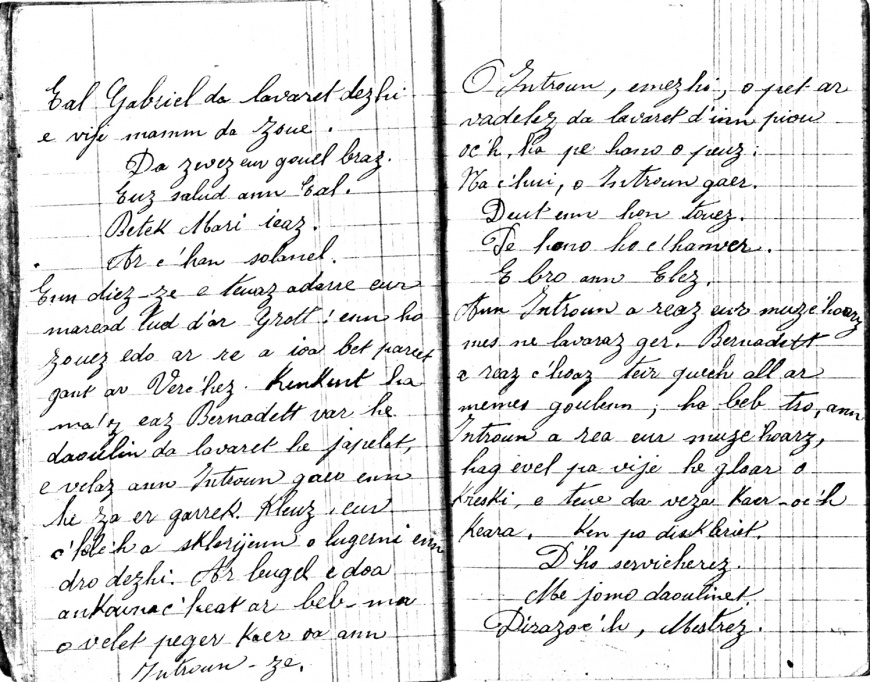 Eal Gabriel da lavaret dezhi
e vije mamm da Zoue.
Da zevez eur gouel braz.
Euz salud ann Eal.
Betek Mari ieaz.
Ar c'han solanel.
Enn diez-ze e teuaz adarre eur
maread tud d'ar Grott! enn ho
zouez edo ar re a ioa bet pareet
gant ar Verc'hez. Kenkent ha
ma'z eaz Bernadett var he
daoulin da lavaret he japelet,
e velaz ann Introun gaer enn
he za er garrek Kleuz, eur
c'hlec'h a sklerijenn o lugerni enn
dro dezhi. Ar bugel e doa
ankounac'heat ar beb-ma
o velet peger Kaer oa ann
Introun-ze.
O Introun, emezhi, o pet ar
vadelez da lavaret d'inn piou
oc'h, ha pe hano o peuz:
Na c'hui, o Introun gaer.
Deut enn hon touez.
Pe hano ho c'hanver.
E bro ann Elez.
Ann Introun a reaz eur muzc'hoarz
mes ne lavaraz ger. Bernadett
a reaz c'hoaz teir gwech all ar
memes goulenn; ha beb tro, ann
Introun a rea eur muzc'hoarz,
hag evel pa vije he gloar o
Kreski, e teue da veza Kaer-oc'h
Keara. Ken po disKleriet.
D'ho servicherez.
Me jomo daoulinet
Dirazoc'h, Mestrez.